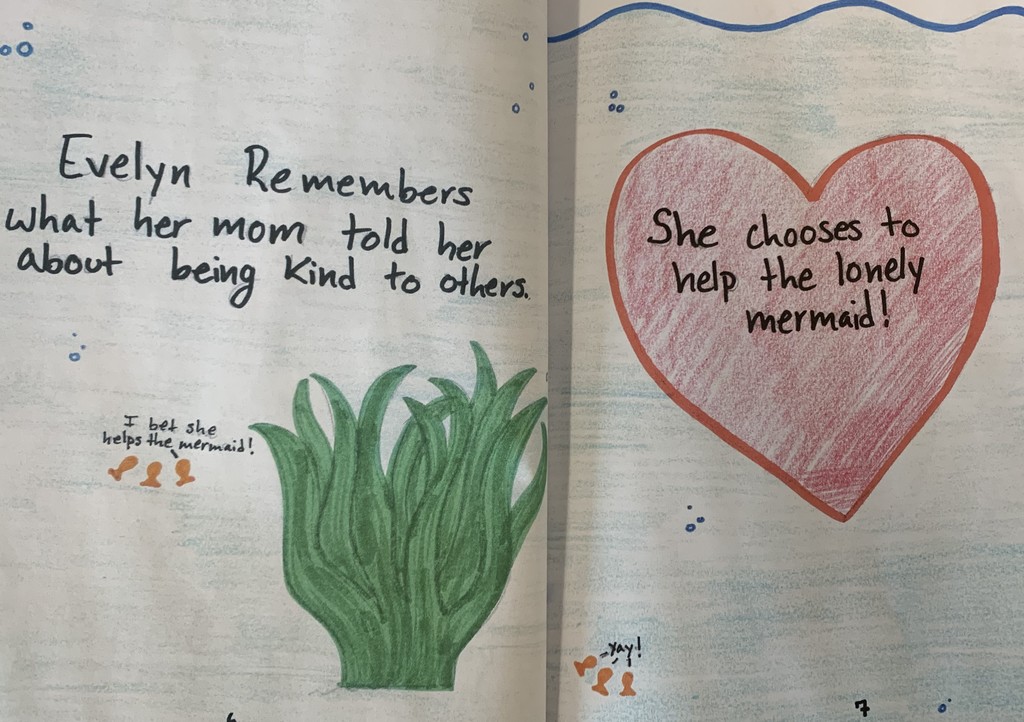 Evelyn Remembers
what her mom told her
about being kind to others.
I bet she
helps the mermaid!
She chooses to
help the lonely
mermaid!
Yay!
7